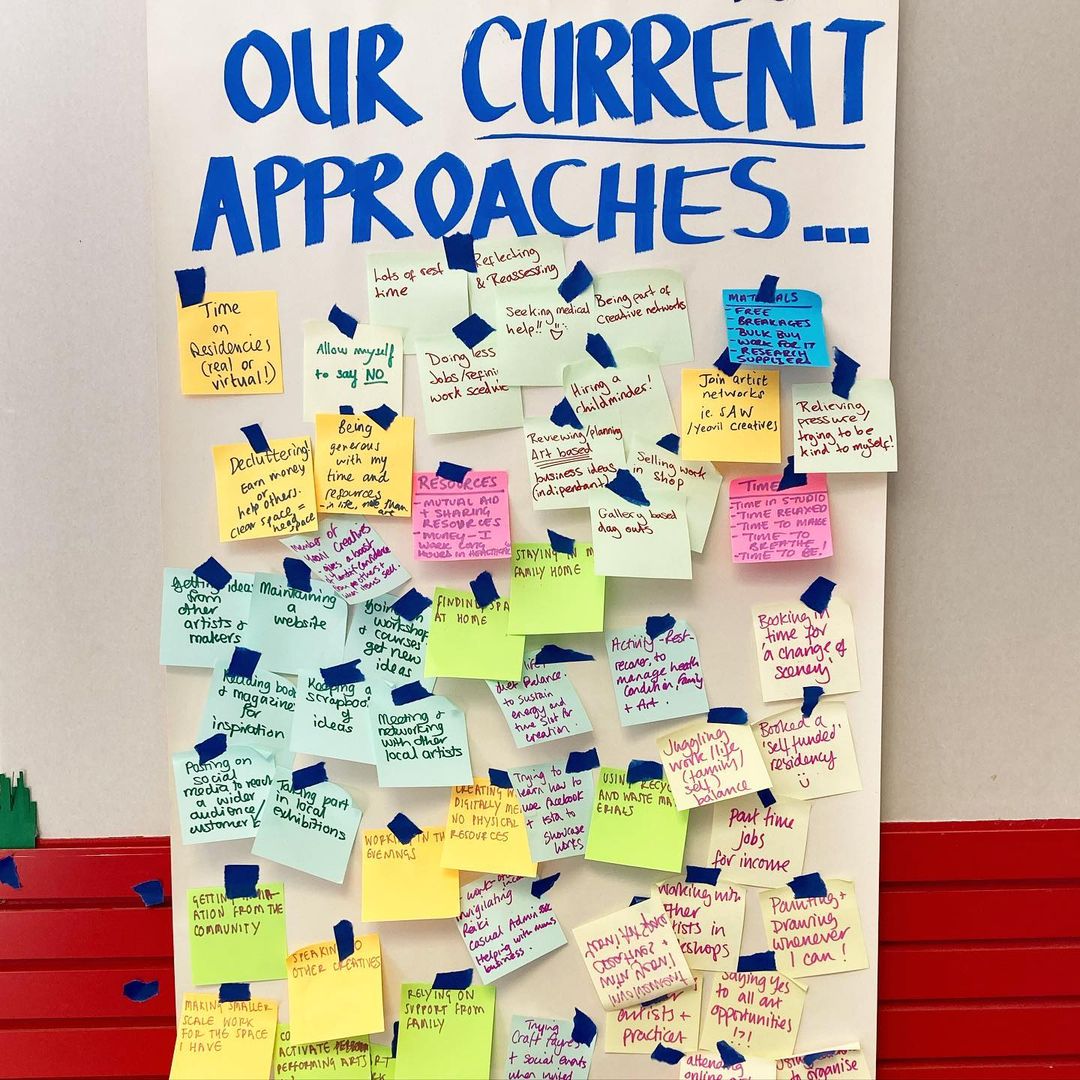 OUR CURRENT
APPROACHES...
Time
on
Residencies
(real or
virtual!)
Allow myself
to say NO
Lots of rest
time
Reflecting
& Reassessing
Seeking medical
help!!
Being part of
Creative networks
Doing less
Jobs/
work
Hiring a
childminder!
MATERIALS
- FREE
- BREAKAGES
- BULK BUY
- WORK FOR IT
- RESEARCH
SUPPLIER
Join artist
networks
ie. SAW
/Yeovil Creatives
Relieving
pressure/
trying to be
kind to myself!
Decluttering!
Earn money
or
help others.
Clear space =
head
space
Being
generous
with my
time and
resources
- in life, more than
art
Reviewing/planning
Art based
business ideas
(indipendant)
Selling work
in
Shop
Gallery based
day outs
RESOURCES
- MUTUAL AID
+ SHARING
RESOURCES
- MONEY - I
WORK LONG
HOURS IN
TIME
- TIME IN STUDIO
- TIME RELAXED
- TIME TO MAKE
- TIME TO
BREATHE!
- TIME TO BE!
member of
Yeovil Creatives
- gives a boost
of confidence
from others +
when items sell.
STAYING IN M
FAMILY HOME
FINDING SPA
AT HOME
Getting ideas
from
other
artists &
makers
Maintaining
a
website
workshop
& courses
get new
ideas
Activity-Rest-
recover, to
manage health
Condition, Family
+ Art.
Booking in
time for
'a change of
scenery'
Reading book
& magazine
for
inspiration
Keeping a
scrapboo
of
ideas
Meeting &
networking
with other
local artists
life
diet balance
to sustain
energy and
time slot for
creation
Juggling
work/life
(family)/
self
balance
Booked a
'self funded'
residency
Posting on
social
media to reach
a wider
audience
customer
Taking part
in local
exhibitions
CREATING W
DIGITALLY ME
NO PHYSICAL
RESOURCES
Trying to
learn how to
use Facebook
+ insta to
Showcase
Works
USING RECYC
AND WASTE MA
ERIALS
Part time
jobs
for income
WORKING IN TH
EVENINGS
invigilating
Reiki
Casual Admin
Helping with mums
business.
Working with
other
artists in
Painting +
Drawing
whenever
I can!
GETTING
ATION FROM THE
COMMUNITY
SPEAKING TO
OTHER CREATIVES
artists +
practices
Saying yes
to all art
opportunities
!?!
MAKING SMALLER
SCALE WORK
FOR THE SPACE
I HAVE
ACTIVATE
PERFORMING ARTS
RELYING ON
SUPPORT FROM
FAMILY
Trying
Craft fayres
+ social events
when invited
attending
online
to organise